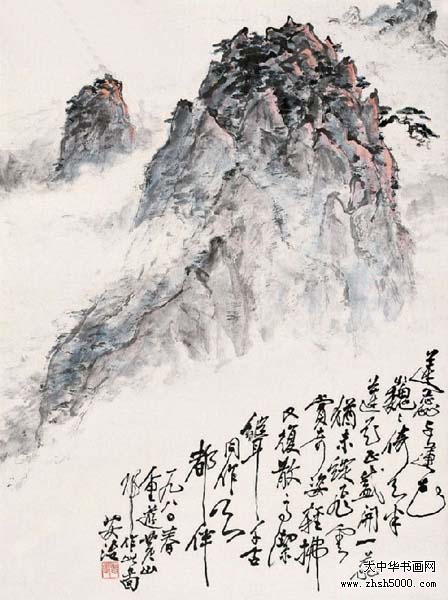 蓮蕊与蓮花
巍巍倚天半
蓮花正盛開一蕊
猶未綻飛雲
賞奇姿輕拂
又復散高潔
千古
同作天
都伴
一九八〇春
重遊黄山
歸作此圖
安治
大中华书画网
www.zhsh5000.com